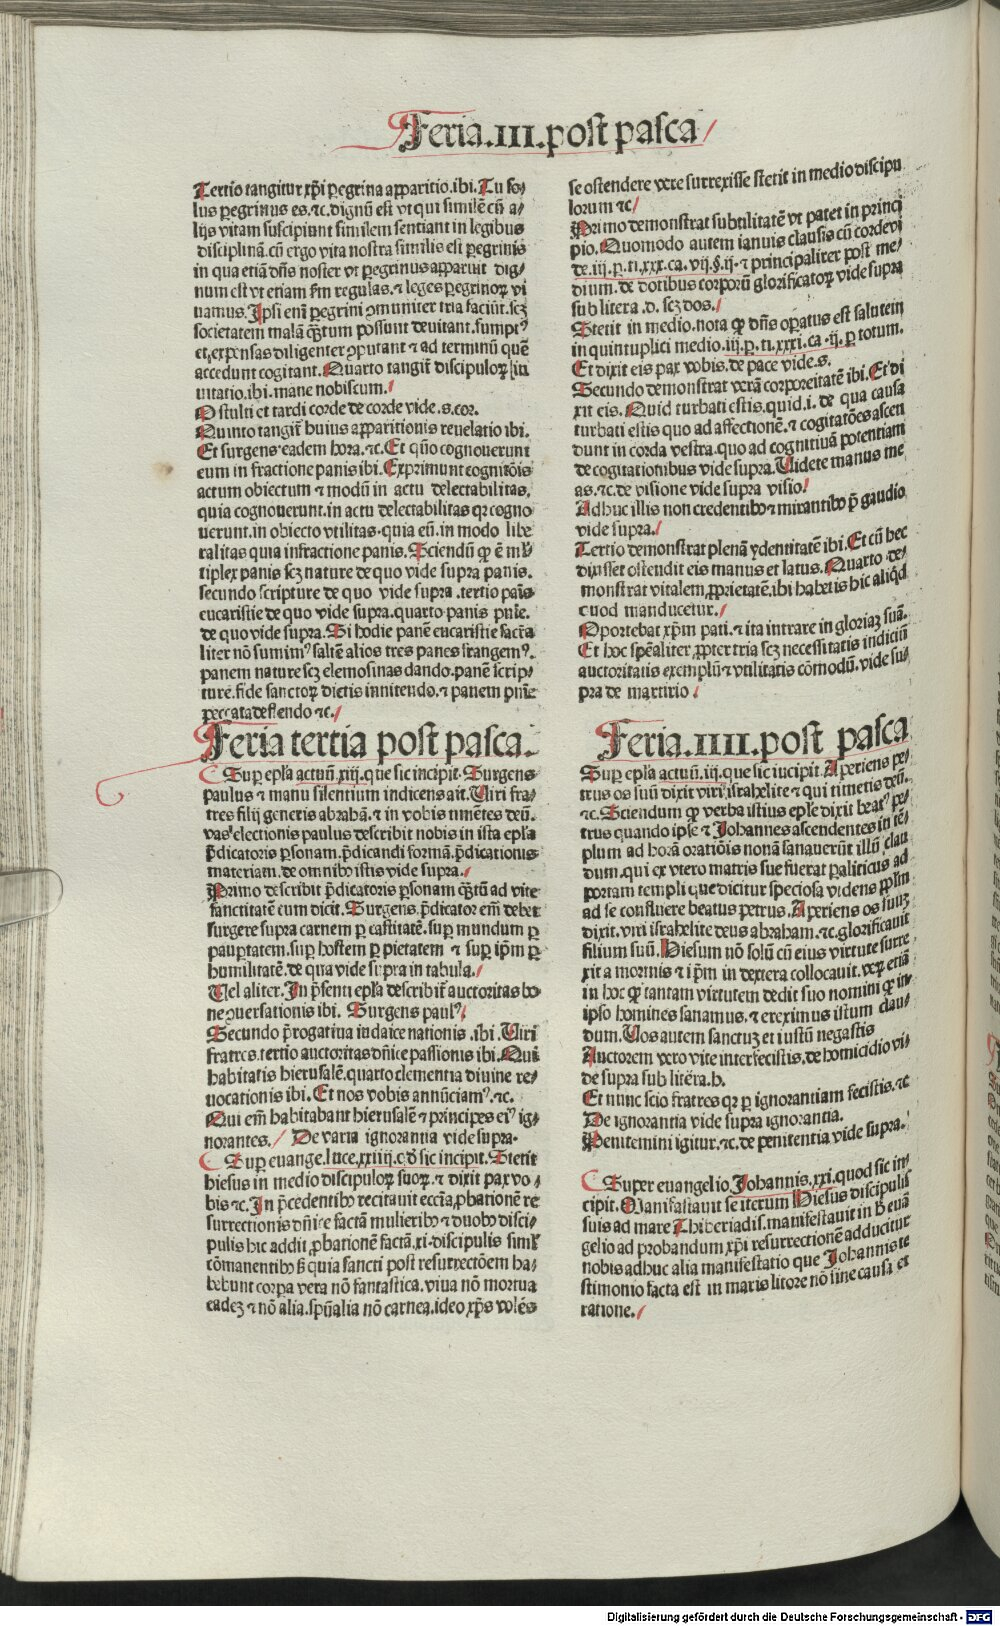 Feria.III.post pasca
Tertio tangitur xp̄i peregrina apparitio.ibi.Tu so⸗
lus peregrinus es.⁊c.dignū est vt qui similē cū a⸗
lijs vitam suscipiunt similem sentiant in legibus
disciplinā.cū ergo vita nostra similis est peregrinis
in qua etiā dn̄s noster vt peregrinus apparuit dig⸗
num est vt etiam fm regulas.⁊ leges peregrinoꝝ vi
uamus.Ipsi enī peregrini ꝯmuniter tria faciūt.scz
societatem malā qꝫtum possunt deuitant.sumptꝰ
et expensas diligenter ꝯputant ⁊ ad terminū quē
accedunt cogitant.Quarto tangit̄ discipuloꝝ in
uitatio.ibi.mane nobiscum.
O stulti et tardi corde de corde vide.s.cor.
Quinto tangit̄ huius apparitionis reuelatio ibi.
Et surgens eadem hora.⁊c.Et qūo cognouerunt
eum in fractione panis ibi.Exprimunt cognitōis
actum obiectum ⁊ modū in actu delectabilitas,
quia cognouerunt.in actu delectabilitas qꝛ cogno
uerunt.in obiecto vtilitas.quia eū.in modo libe
ralitas quia infractione panis.Sciendū ꝙ ē ml̄
tiplex panis scz nature de quo vide supra panis.
secundo scripture de quo vide supra.tertio panis
eucaristie de quo vide supra.quarto panis pnīe.
de quo vide supra.Si hodie panē eucaristie sacra
liter nō sumimꝰ saltē alios tres panes frangemꝰ.
panem nature scz elemosinas dando.panē scrip⸗
ture.fide sanctoꝝ dictis innitendo.⁊ panem pnīe
peccata deflendo ⁊c.
Feria tertia post pasca.
Super ep̄la actuū.xiij.que sic incipit.Surgens
paulus ⁊ manu silentium indicens ait.Uiri fra⸗
tres filij generis abrahā.⁊ in vobis timētes deū.
vas electionis paulus describit nobis in ista ep̄la
p̄dicatoris ꝑsonam.p̄dicandi formā.p̄dicationis
materiam.de omnibꝰ istis vide supra.
Primo describit p̄dicatoris ꝑsonam qꝫtū ad vite
sanctitatē cum dicit.Surgens.p̄dicator em̄ debet
surgere supra carnem ꝑ castitatē.suꝑ mundum ꝑ
pauꝑtatem.suꝑ hostem ꝑ pietatem ⁊ suꝑ ip̄m ꝑ
humilitatē.de qua vide supra in tabula.
Uel aliter.In p̄senti ep̄la describit̄ auctoritas bo⸗
ne ꝯuersationis ibi. Surgens paulꝰ.
Secundo p̄rogatiua iudaice nationis.ibi.Uiri
fratres.tertio auctoritas dn̄ice passionis ibi.Qui
habitatis hierusalē.quarto clementia diuine re⸗
uocationis ibi.Et nos vobis annūciamꝰ.⁊c.
Qui em̄ habitabant hierusalē ⁊ principes eiꝰ ig⸗
norantes. De varia ignorantia vide supra.
Super euange.luce.xxiiij.qđ sic incipit.Stetit
hiesus in medio discipuloꝝ suoꝝ.⁊ dixit pax vo⸗
bis ⁊c.In p̄cedentibꝰ recitauit eccīa ꝓbationē re
surrectionis dn̄ice factā mulieribꝰ ⁊ duobꝰ disci⸗
pulis hic addit ꝓbationē factā.xi.discipulis simł
cōmanentibꝰ ꝫ quia sancti post resurrectōem ha⸗
bebunt corpora vera nō fantastica.viua nō mortua
eadeꝫ ⁊ nō alia.spūalia nō carnea.ideo xp̄s volēs
se ostendere vere surrexisse stetit in medio discipu
lorum ⁊c
Primo demonstrat subtilitatē vt patet in princi
pio.Quomodo autem ianuis clausis cū cordeui
de.iij.p.ti.xxx.ca.vij.§.ij.⁊ principaliter post me⸗
dium.de dotibus corporū glorificatoꝝ vide supra
sub litera.d.scz dos.
Stetit in medio.nota ꝙ dn̄s oꝑatus est salutem
in quintuplici medio.iij.p.ti.xxxi.ca.ij.ꝑ totum.
Et dixit eis pax vobis.de pace vide.s.
Secundo demonstrat verā corporeitatē ibi.Et di
xit eis.Quid turbati estis.quid.i.de qua causa
turbati estis quo ad affectionē.⁊ cogitatōes ascen
dunt in corda vestra.quo ad cognitiuā potentiam
de cogitationibus vide supra.Uidete manus me
as.⁊c.de visione vide supra visio.
Adhuc illis non credentibꝰ ⁊ mirantibꝰ p̄ gaudio
vide supra.
Tertio demonstrat plenā ydentitatē ibi.Et cū hec
dixisset ostendit eis manus et latus.Quarto de⸗
monstrat vitalem ꝓprietatē.ibi habetis hic aliqd
quod manducetur.
Oportebat xp̄m pati.⁊ ita intrare in gloriaꝫ suā.
Et hoc sp̄ealiter ꝓpter tria scz necessitatis indiciū
auctoritatis exemplū ⁊ vtilitatis cōmodū.vide su⸗
pra de martirio.
Feria.IIII.post pasca
Super ep̄la actuū.iij.que sic iucipit.Aperiens pe⸗
trus os suū dixit viri israhelite ⁊ qui timetis deū.
⁊c.Sciendum ꝙ verba istius ep̄le dixit beatꝰ pe⸗
trus quando ipse ⁊ Johannes ascendentes in tē⸗
plum ad horā oratiōis nonā sanauerūt illū clau
dum.qui ex vtero matris sue fuerat paliticus ad
portam templi que dicitur speciosa videns ppl̄m
ad se confluere beatus petrus.Aperiens os suuꝫ
dixit.viri israhelite deus abraham.⁊c.glorificauit
filium suū.Hiesum nō solū cū eius virtute surre
xit a mortuis ⁊ ip̄m in dextera collocauit.veꝝ etiā
in hoc ꝙ tantam virtutem dedit suo nomini ꝙ in⸗
ipso homines sanamus.⁊ ereximus istum clau⸗
dum.Uos autem sanctuꝫ et iustū negastis
Auctorem vero vite interfecistis.de homicidio vi⸗
de supra sub litera.h.
Et nunc scio fratres qꝛ ꝑ ignorantiam fecistis.⁊c
De ignorantia vide supra ignorantia.
Penitemini igitur.⁊c.de penitentia vide supra.
Super euangelio.Johannis.xxi.quod sic in⸗
cipit.Manifestauit se iterum Hiesus discipulis
suis ad mare Thiberiadis.manifestauit in h̄ euā
gelio ad probandum xp̄i resurrectionē adducitur
nobis adhuc alia manifestatio que Johannis te
stimonio facta est in maris litore nō sine causa et
ratione.
Digitalisierung gefördert durch die Deutsche Forschungsgemeinschaft - DFG